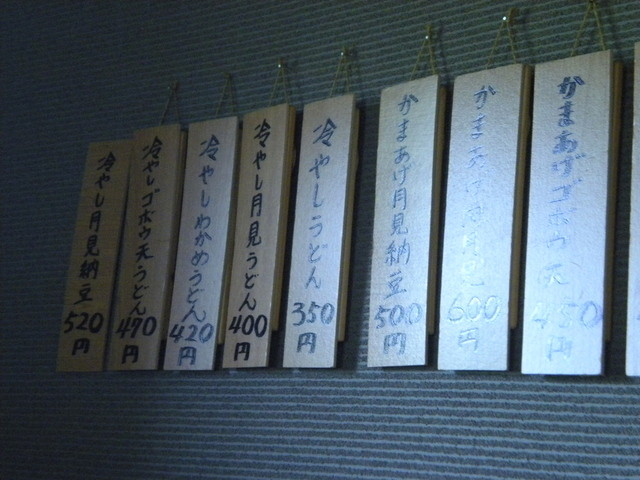 かまあげゴボウ天 450円
600円
かまあげ月見納豆 500円
冷やしうどん 350円
冷やし月見うどん 400円
冷やしわかめうどん 420円
冷やしゴボウ天うどん 470円
冷やし月見納豆 520円